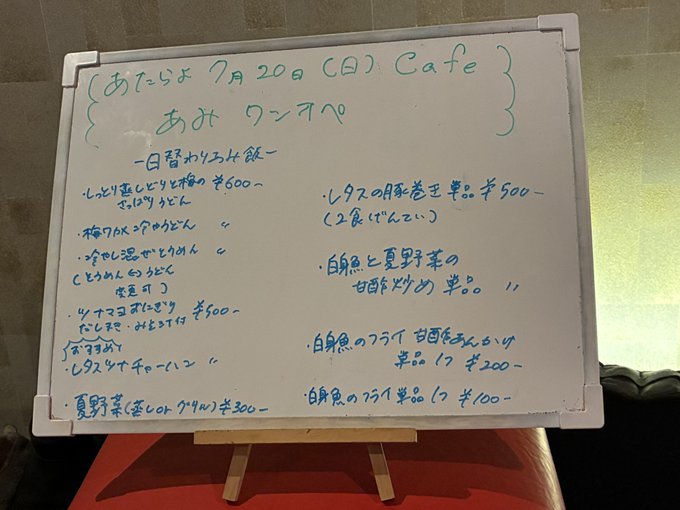 あたらよ 7月20日(日) Cafe
あみ ワンオペ
ー日替わりあみ飯ー
・しっとり蒸しどりと梅の ¥600-
さっぱりうどん
・梅ワカメ冷やうどん 〃
・冷やし混ぜそうめん 〃
(そうめん⇔うどん
変更可)
・ツナマヨおにぎり ¥500-
だしまき・みそ汁付
おすすめ!
・レタスツナチャーハン 〃
・夏野菜(蒸しorグリル) ¥300-
・レタスの豚巻き 単品 ¥500-
(2食げんてい)
・白身魚と夏野菜の
甘酢炒め 単品 〃
・白身魚のフライ 甘酢あんかけ
単品1つ ¥200-
・白身魚のフライ 単品1つ ¥100-